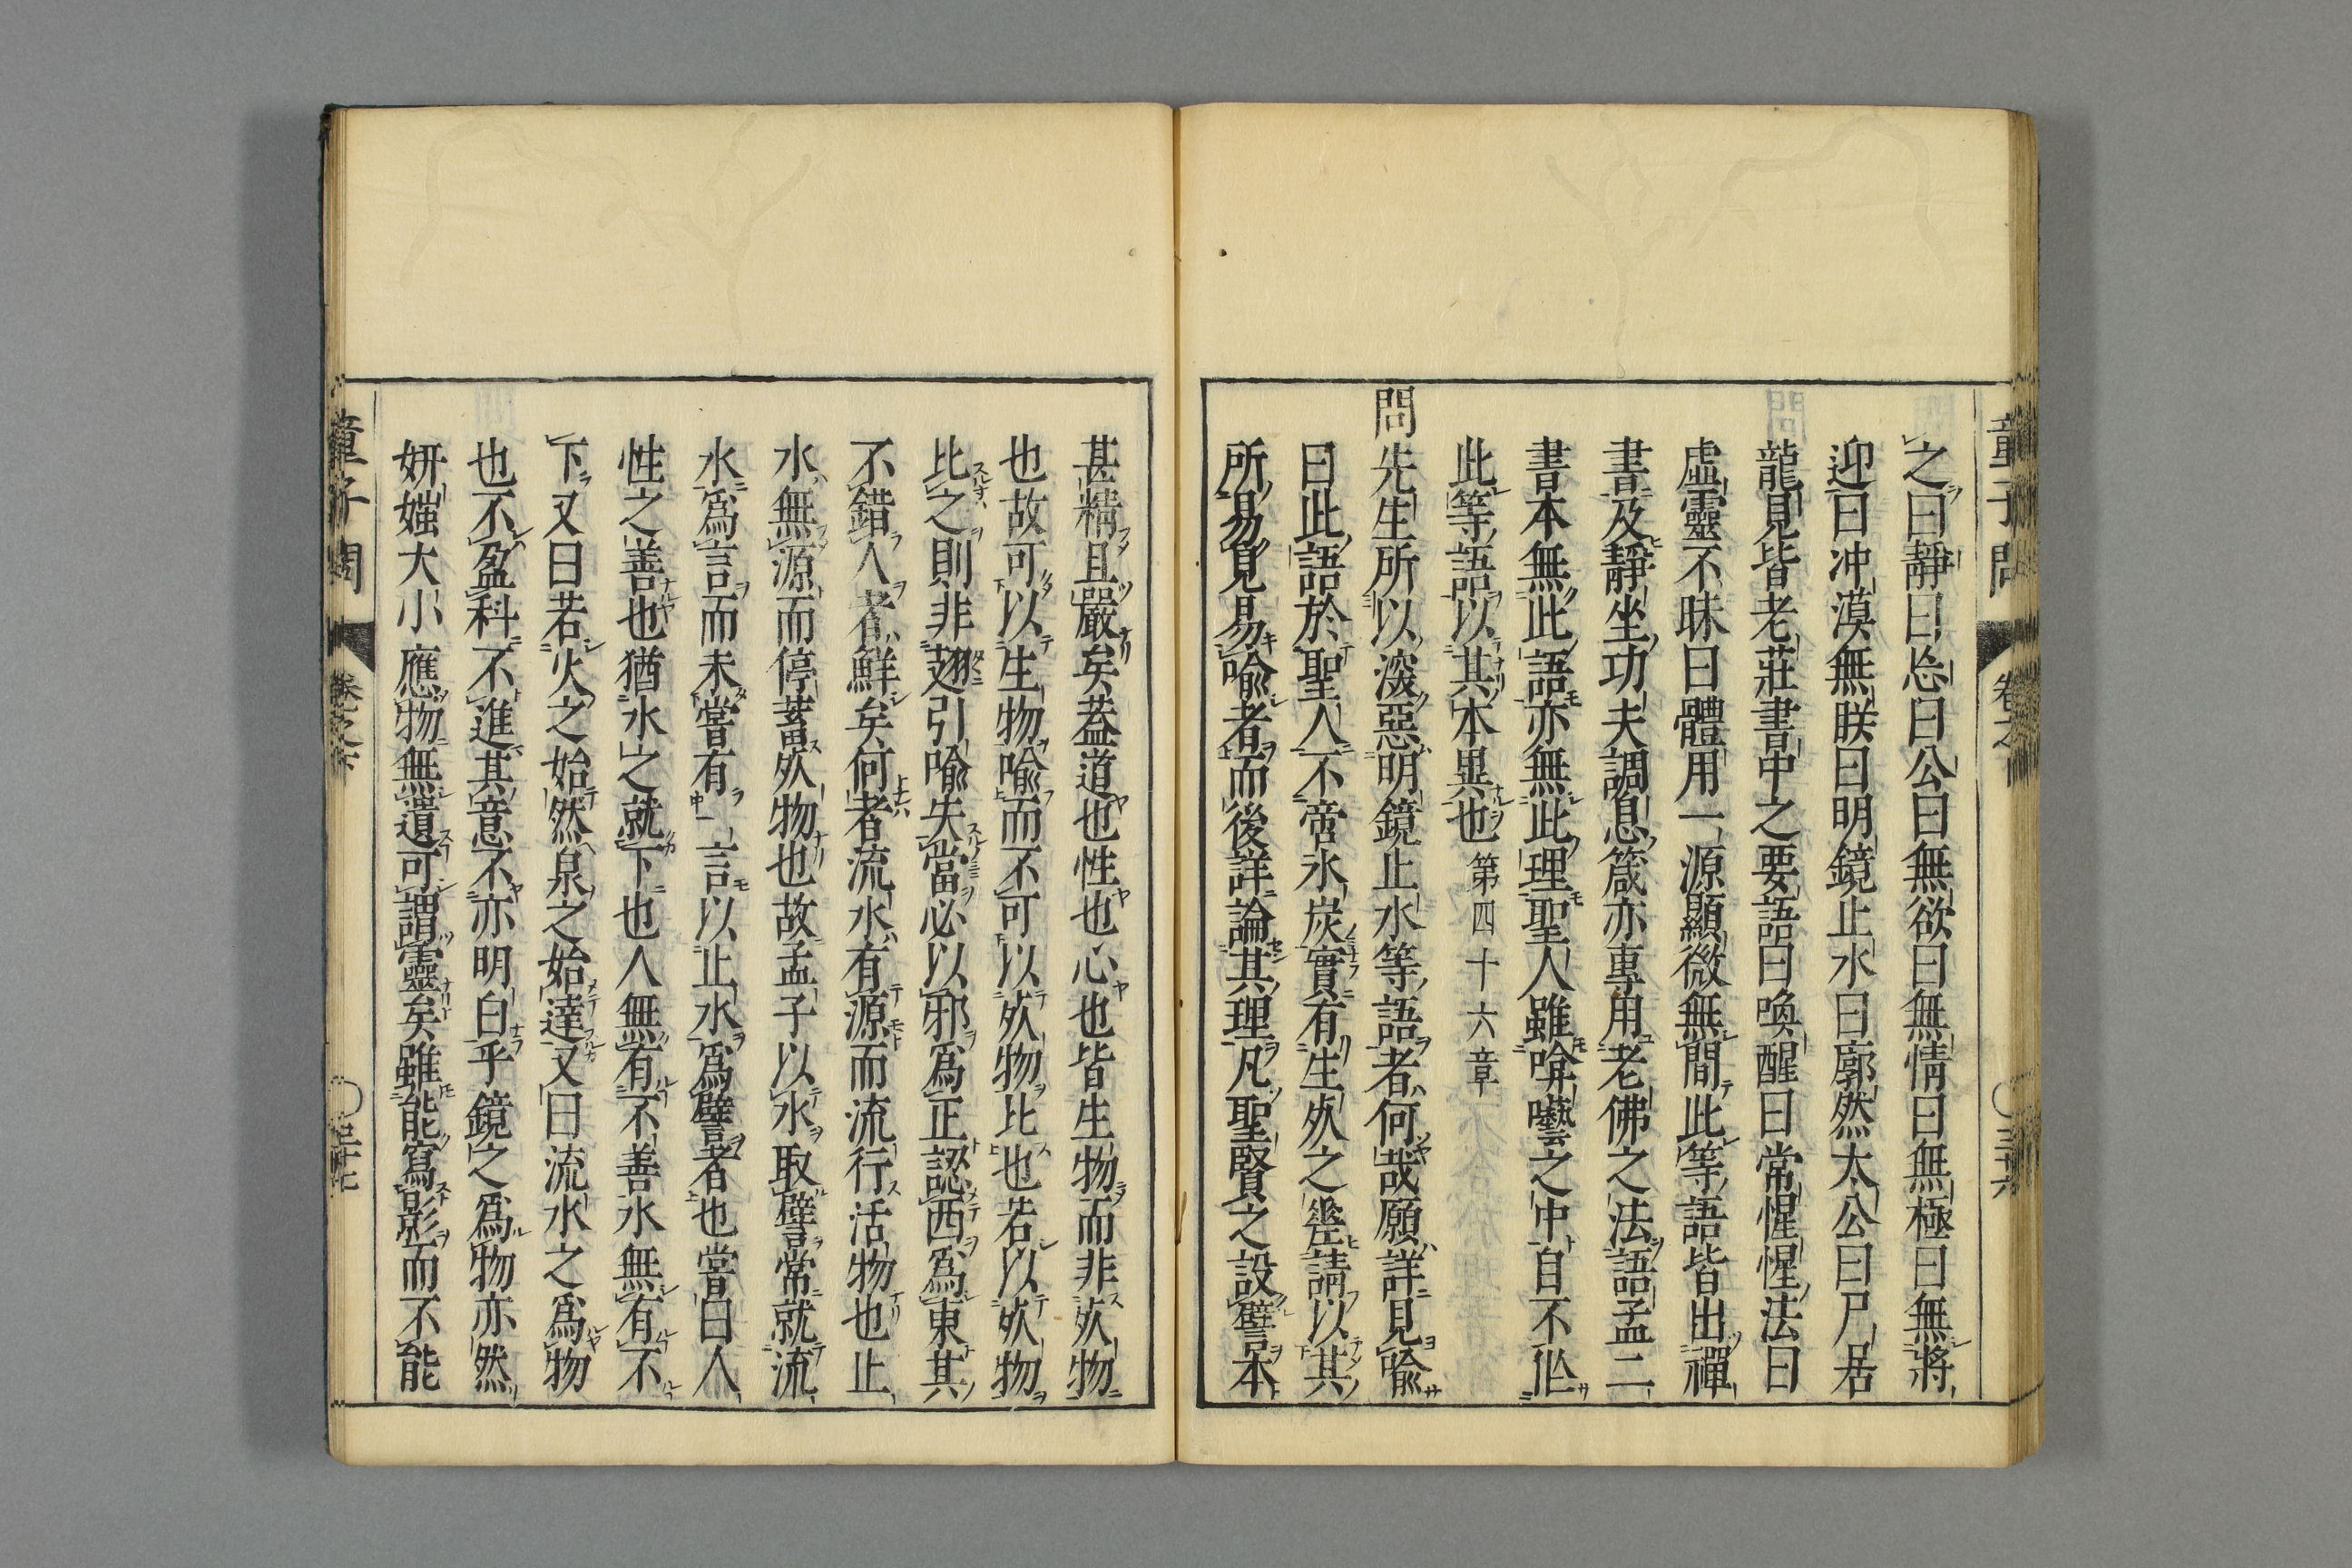 童子問 卷之下 三十六
之曰靜曰㤀曰公曰無欲曰無情曰無極曰無將
迎曰冲漠無朕曰明鏡止水曰廓然太公曰尸居
龍見皆老莊書中之要語曰喚醒曰常惺惺法曰
虛靈不昧曰體用一源顯微無間此等語皆出禪
書及靜坐功夫調息箴亦專用老佛之法語孟二
書本無此語亦無此理聖人雖啽囈之中自不作
此等語以其本異也 第四十六章
問先生所以深惡明鏡止水等語者何哉願詳見喻
曰此語於聖人不啻氷炭實有生死之差請以其
所易見易喻者而後詳論其理凡聖賢之設譬本
甚精且嚴矣葢道也性也心也皆生物而非死物
也故可以生物喻而不可以死物比也若以死物
比之則非翅引喻失當必以邪爲正認西爲東其
不錯人者鮮矣何者流水有源而流行活物也止
水無源而停蓄死物也故孟子以水取譬常就流
水爲言而未嘗有一言以止水爲譬者也嘗曰人
性之善也猶水之就下也人無有不善水無有不
下又曰若火之始然泉之始達又曰流水之爲物
也不盈科不進其意不亦明白乎鏡之爲物亦然
妍媸大小應物無遺可謂靈矣雖能寫影而不能
童子問 卷之下 三十七